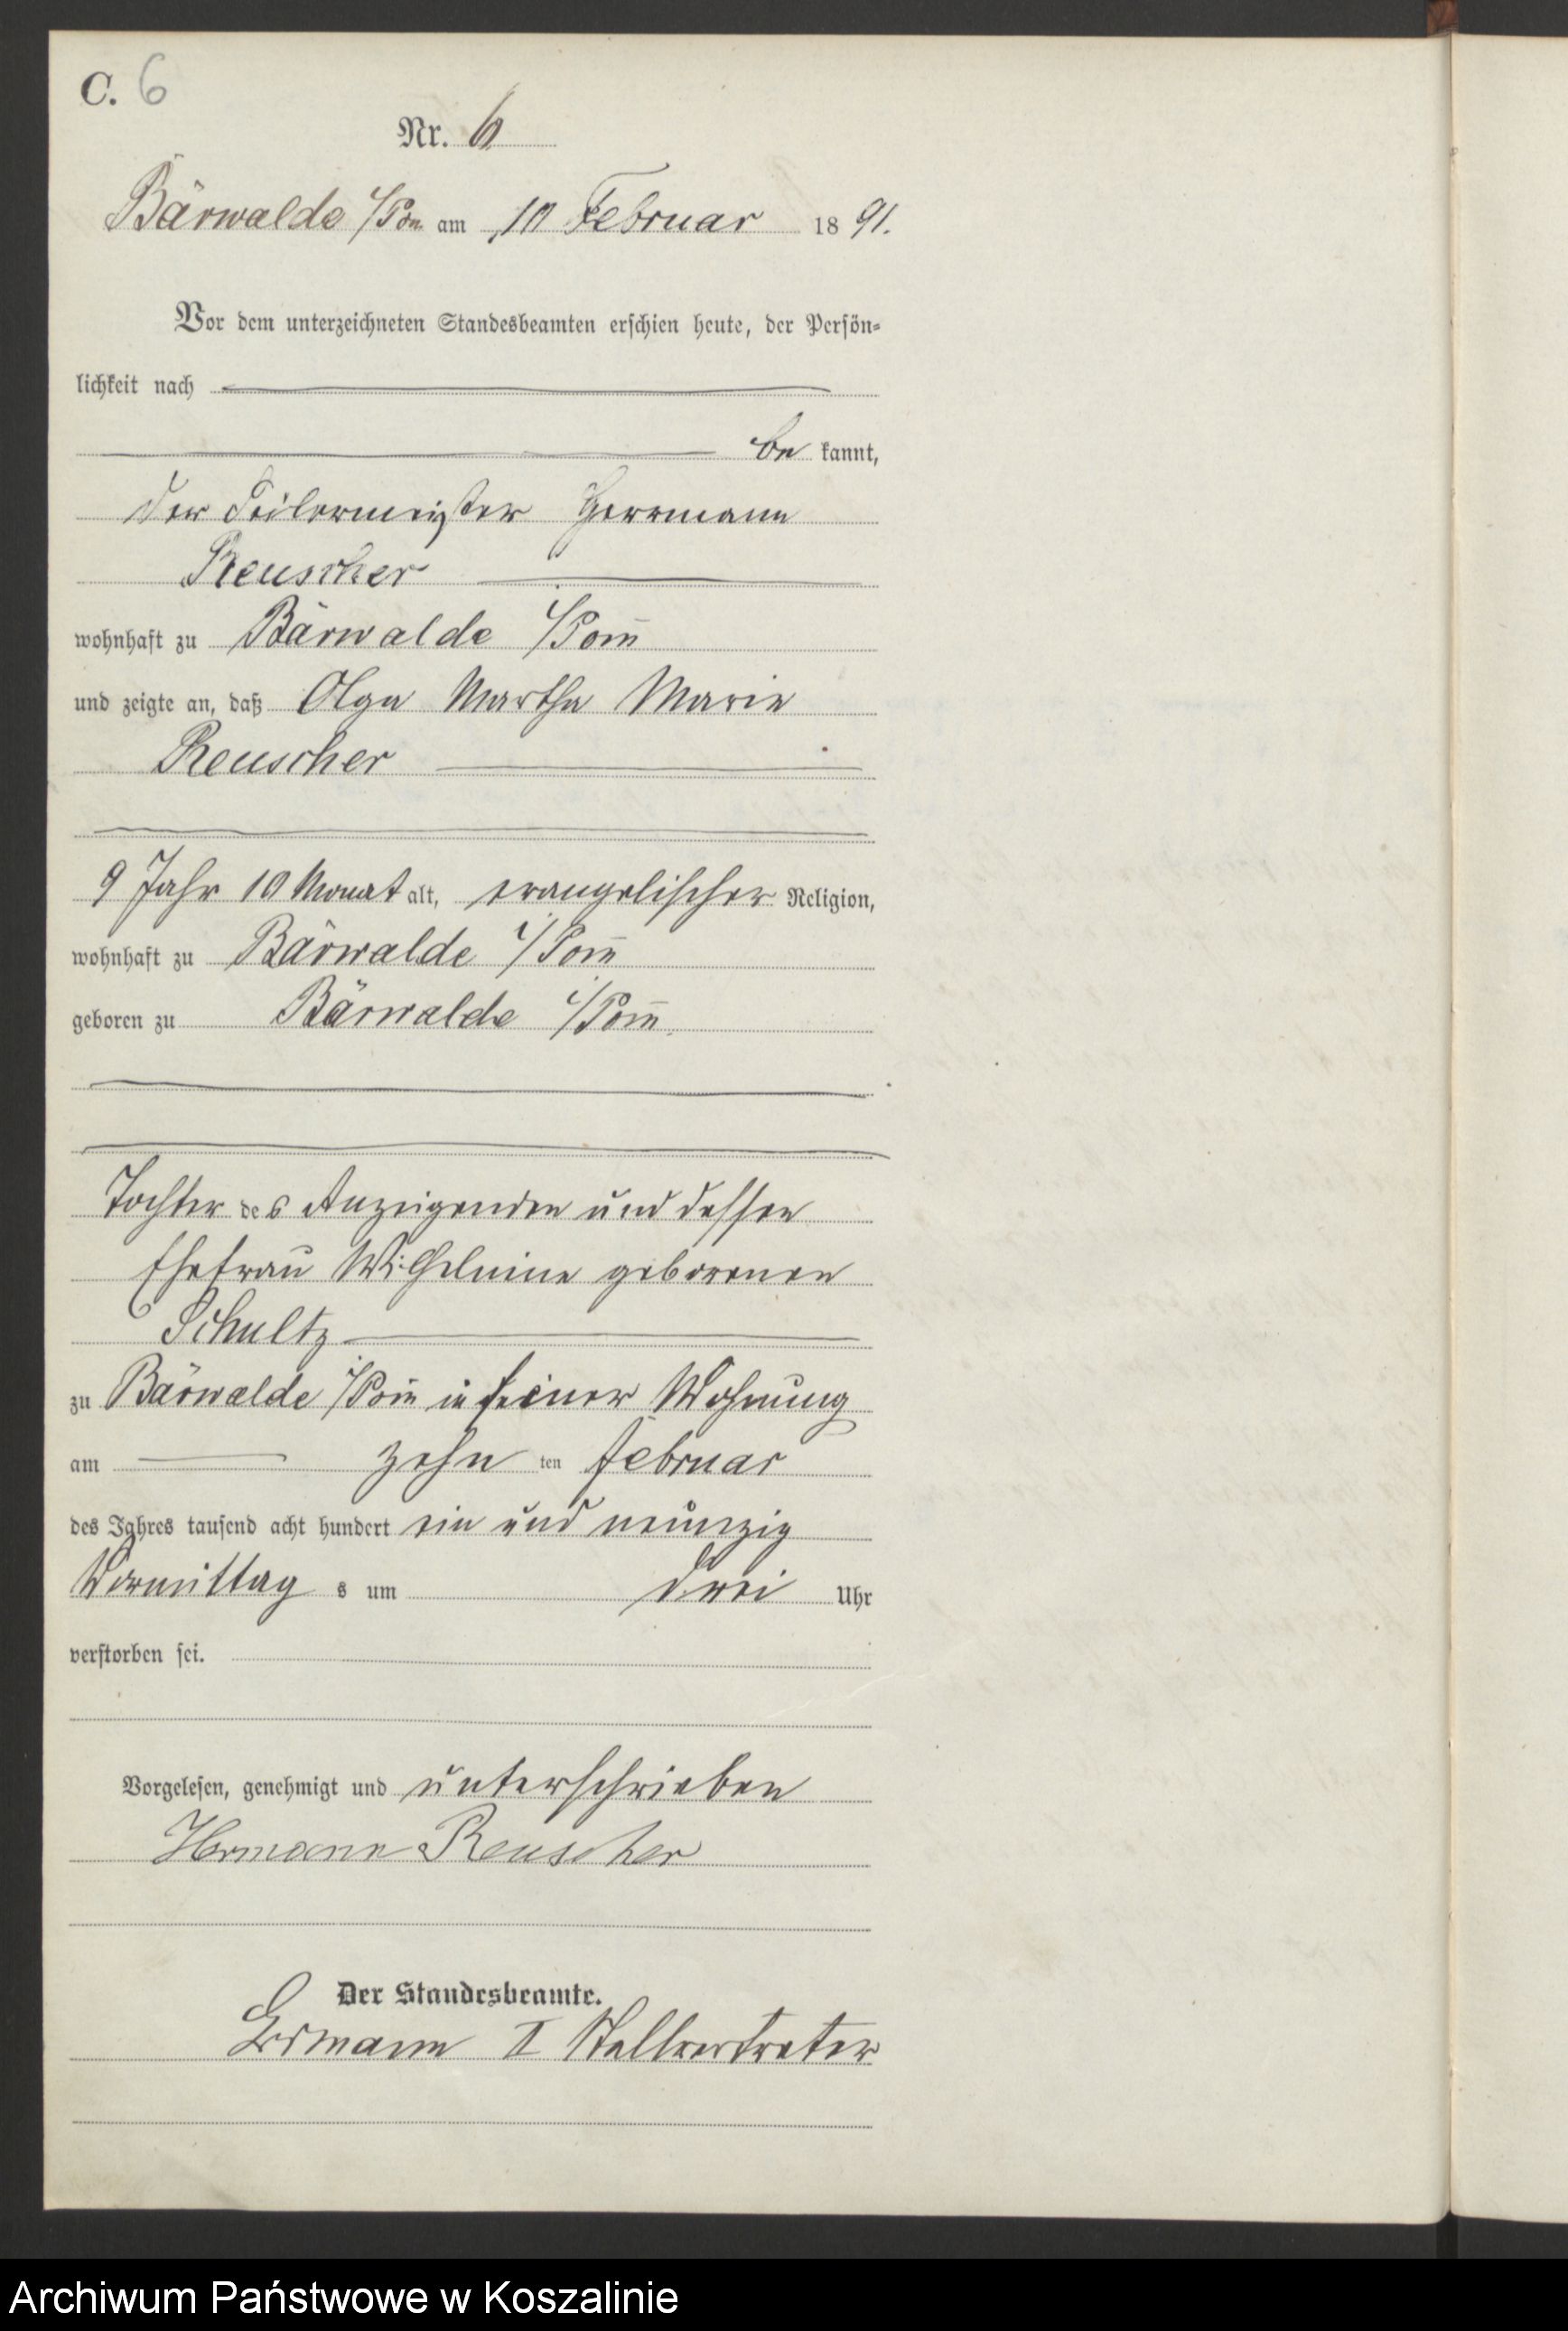 C. 6
Nr. 6
Bärwalde i/Pom. am 10 Februar 1891.
Vor dem unterzeichneten Standesbeamten erschien heute, der Persön=
lichkeit nach
be kannt,
der Seilermeister Herrmann
Reuscher
wohnhaft zu Bärwalde i/Pom̅
und zeigte an, daß Olga Martha Marie
Reuscher
9 Jahr 10 Monat alt, evangelischer Religion,
wohnhaft zu Bärwalde i/Pom̅
geboren zu Bärwalde i/Pom̅.
Tochter des Anzeigenden und dessen
Ehefrau Wilhelmine geborenen
Schultz
zu Bärwalde i/Pom̅ in seiner Wohnung
am zehn ten Februar
des Jahres tausend acht hundert ein und neunzig
Vormittag s um drei Uhr
verstorben sei.
Vorgelesen, genehmigt und unterschrieben
Hermann Reuscher
Der Standesbeamte.
Ermann II Stellvertreter
Archiwum Państwowe w Koszalinie